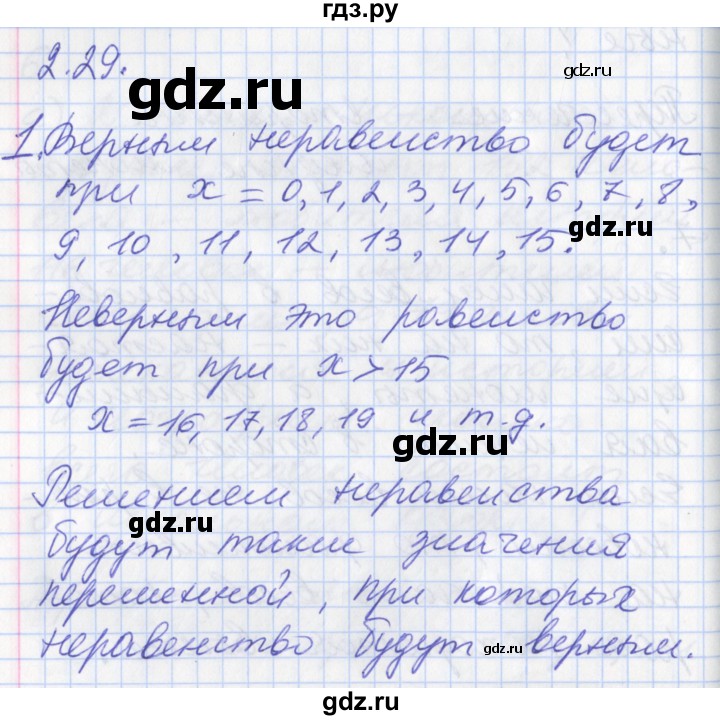 гдз.ру
2.29.
gdz.ru
1. Верным неравенство будет
при x = 0, 1, 2, 3, 4, 5, 6, 7, 8,
gdz.ru
9, 10, 11, 12, 13, 14, 15.
Неверным это равенство
будет при x > 15
x = 16, 17, 18, 19 и т.д.
gdz.ru
Решением неравенства
gdz.ru
будут такие значения
переменной, при которых
неравенство будут верным.
gdz.ru
gdz.ru